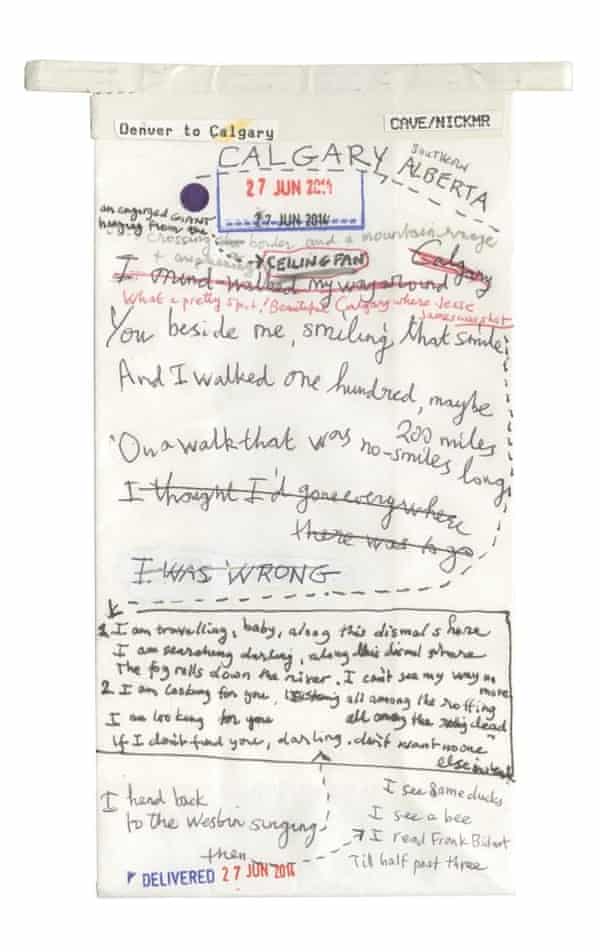 Denver to Calgary
CAVE/NICKMR
CALGARY, SOUTHERN
ALBERTA
27 JUN 2014
27 JUN 2014
an engorged GIANT
hanging from the
crossing the border and a mountain range
+ CEILING FAN
I walked my way around Calgary
What a pretty spot! Beautiful Calgary where Jesse
James was shot
You beside me, smiling that smile
And I walked one hundred, maybe
200 miles
On a walk that was no-smiles long
I thought I'd gone everywhere
there was to go
I WAS WRONG
1. I am travelling, baby, along this dismal sphere
I am searching darling, along this dismal sphere
The fog rolls down the river. I can't see my way no
more
2 I am looking for you, all among the rotting
I am looking for you all among the dead
If I don't find you, darling. don't want no one
else
I head back
to the Westin singing
then
I see some ducks
I see a bee
I read Frank Bidart
Till half past three
DELIVERED 27 JUN 2014